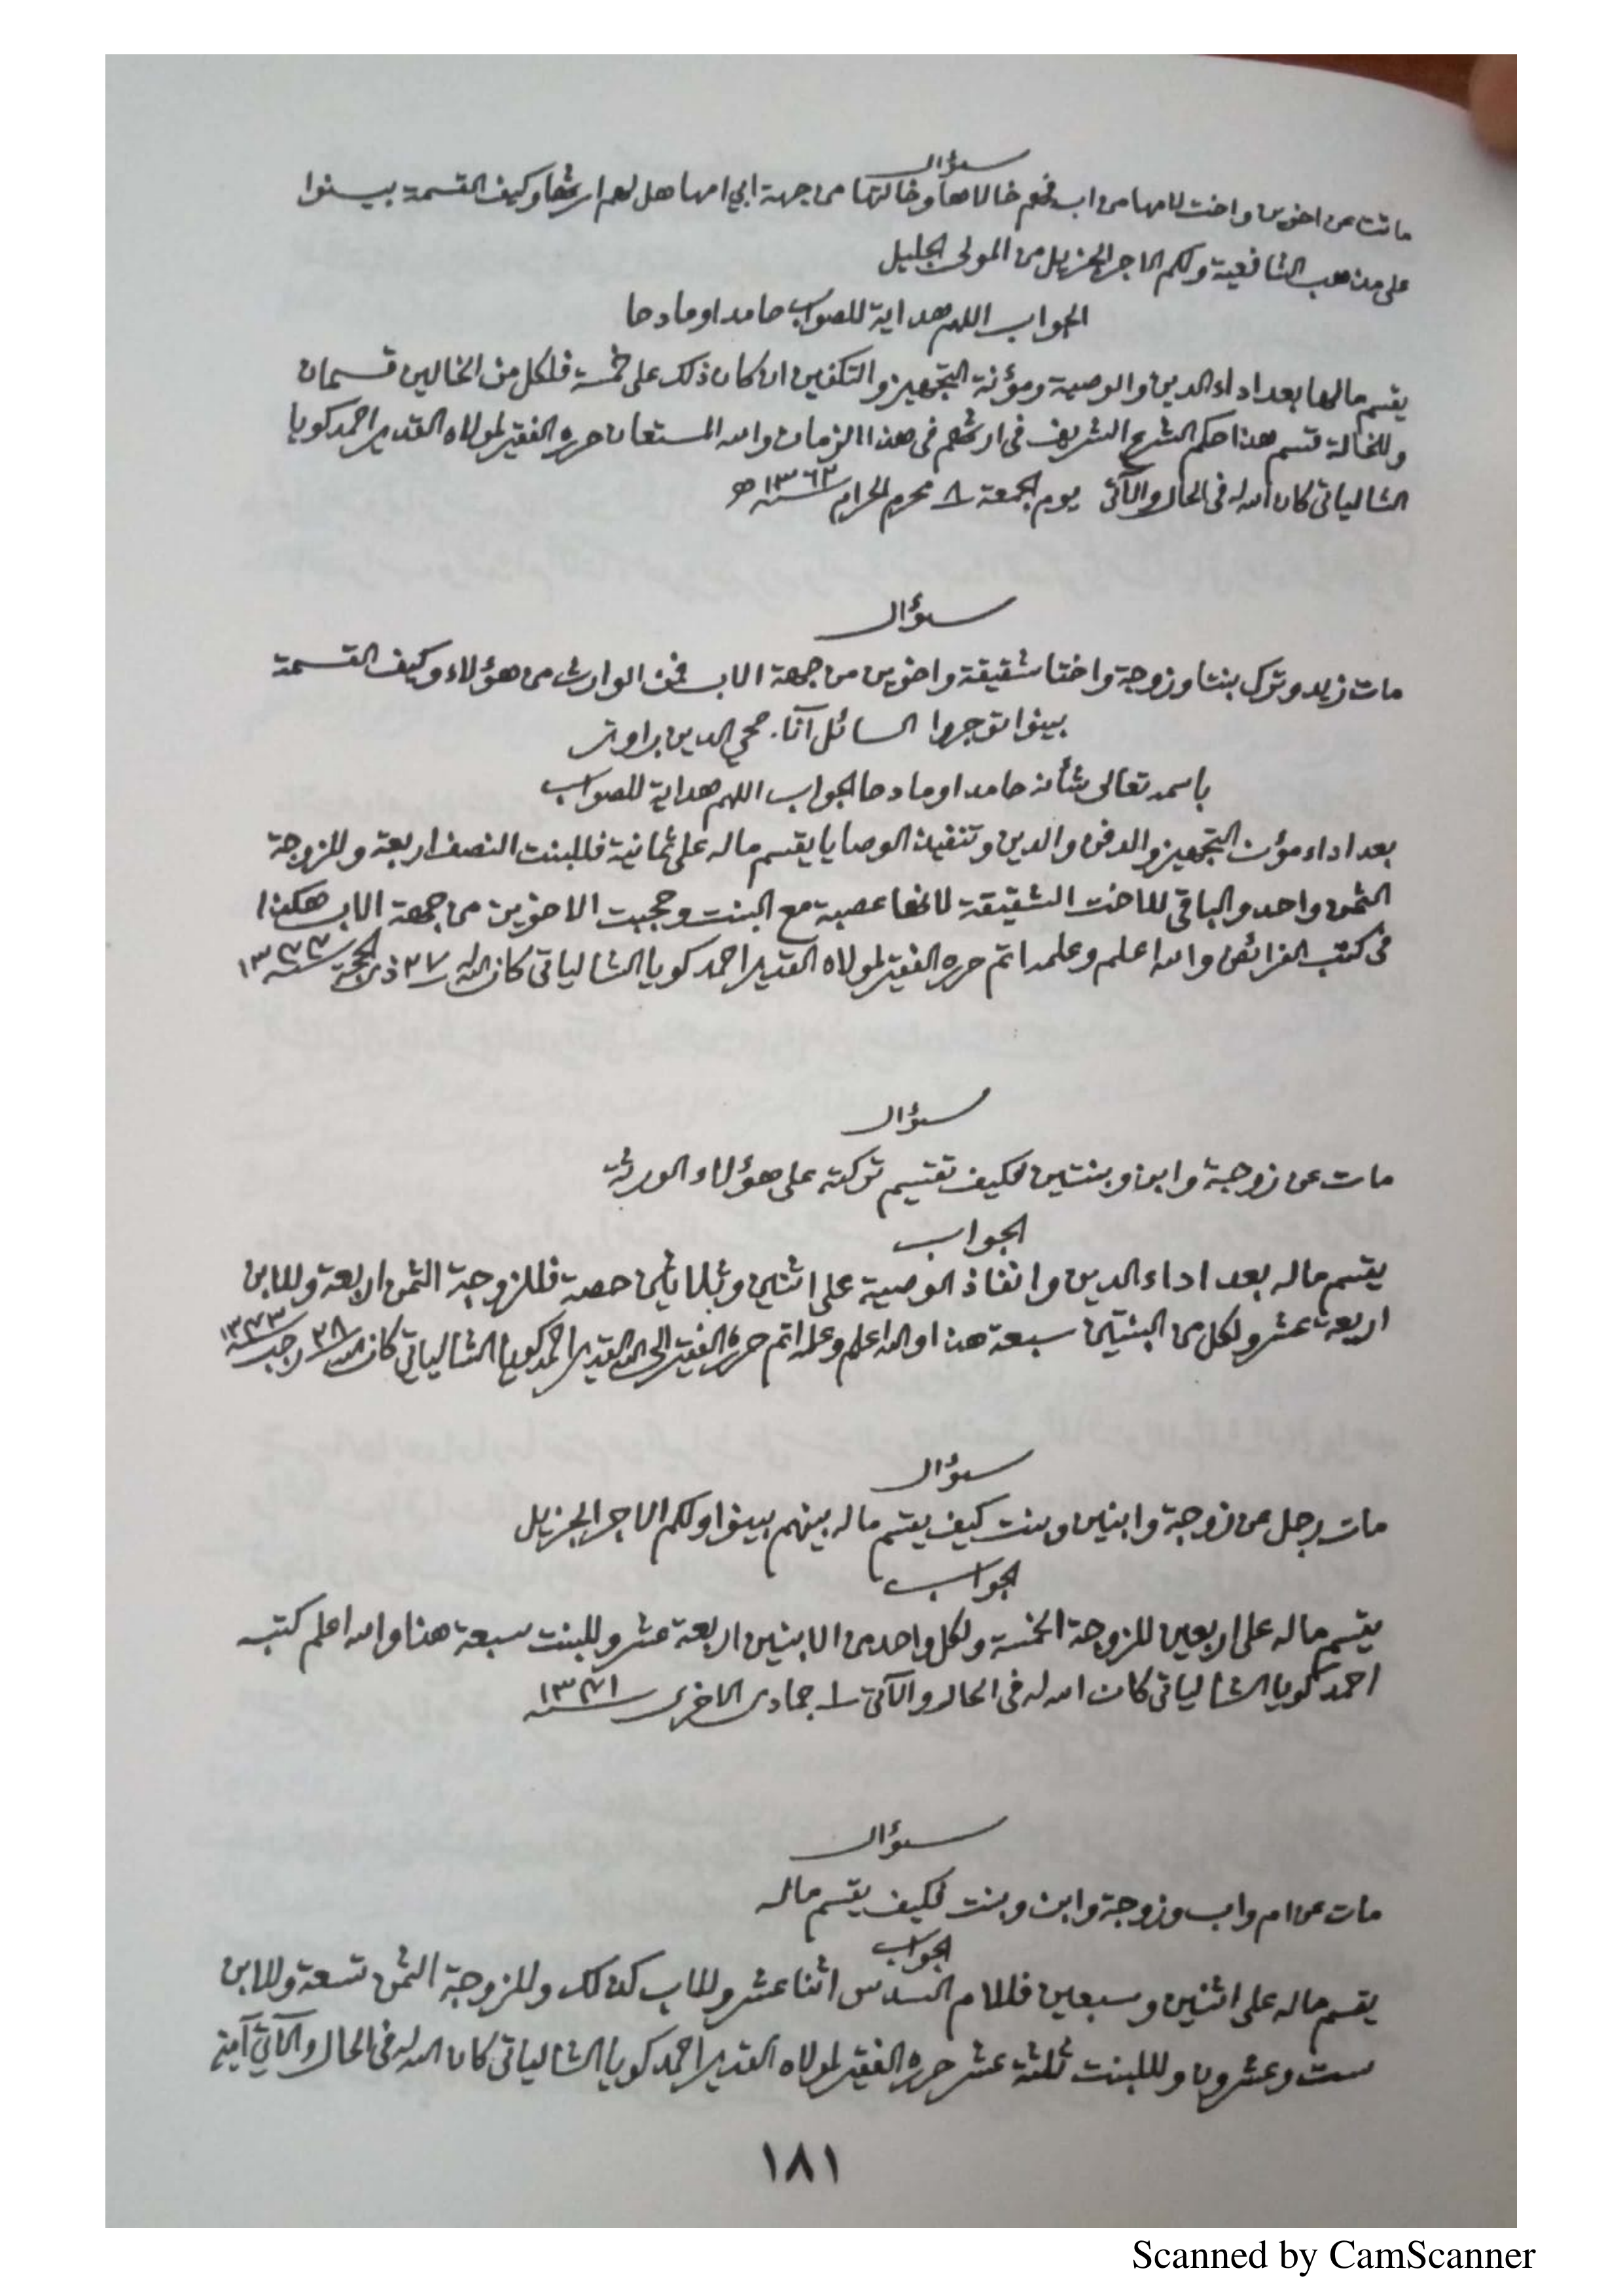 سؤال
ماتت عن اخوين واخت لامها من اب فهم خالاها وخالتها من جهة ابي امها هل لهم ارثها وكيف القسمة بينوا
على مذهب الشافعية ولكم الاجر الجزيل من المولى الجليل
الجواب اللهم هداية للصواب حامدا ومادحا
يقسم مالها بعد اداء الدين والوصية ومؤنة التجهيز والتكفين ان كان ذلك على خمسة فلكل من الخالين قسمان
وللخالة قسم هذا حكم الشرع الشريف فى ارثهم فى هذا الزمان والله المستعان حرره الفقير لمولاه القدير احمد كويا
الشالياتى كان الله له فى الحال والآتى يوم الجمعة ٨ محرم الحرام سنة ١٣٦٢ هـ
سؤال
مات زيد وترك بنتا وزوجة واختا شقيقة واخوين من جهة الاب فمن الوارث من هؤلاء وكيف القسمة
بينوا توجروا السائل آنا. محي الدين براوتر
باسمه تعالى شأنه حامدا ومادحا الجواب اللهم هداية للصواب
بعد اداء مؤن التجهيز والدفن والدين وتنفيذ الوصايا يقسم ماله على ثمانية فللبنت النصف اربعة وللزوجة
الثمن واحد والباقى للاخت الشقيقة لانها عصبة مع البنت وحجبت الاخوين من جهة الاب هكذا
فى كتب الفرائض والله اعلم وعلمه اتم حرره الفقير لمولاه القدير احمد كويا الشالياتى كان الله له ٢٧ ذى الحجة سنة
سؤال
مات عن زوجة وابن وبنتين فكيف تقتسم تركته على هؤلاء الورثة
الجواب
يقسم ماله بعد اداء الدين وانفاذ الوصية على اثنين وثلاثين حصة فللزوجة الثمن اربعة وللابن
اربعة عشر ولكل من البنتين سبعة هذا والله اعلم وعلمه اتم حرره الفقير الى الله القدير احمد كويا الشالياتي كان الله له ٢٨ رجب سنة ١٣٧٣
سؤال
مات رجل عن زوجة وابنين وبنت كيف يقسم ماله بينهم بينوا ولكم الاجر الجزيل
الجواب
يقسم ماله على اربعين للزوجة الخمسة ولكل واحد من الابنين اربعة عشر وللبنت سبعة هذا والله اعلم كتبه
احمد كويا الشالياتى كان الله له فى الحال والآتى ١ جمادى الاخرى سنة ١٣٧١
سؤال
مات عن ام واب وزوجة وابن وبنت فكيف يقسم ماله
الجواب
يقسم ماله على اثنين وسبعين فللام السدس اثنا عشر وللاب كذلك وللزوجة الثمن تسعة وللابن
ست وعشرون وللبنت ثلثة عشر حرره الفقير لمولاه القدير احمد كويا الشالياتى كان الله له فى الحال والآتي آمين
١٨١
Scanned by CamScanner